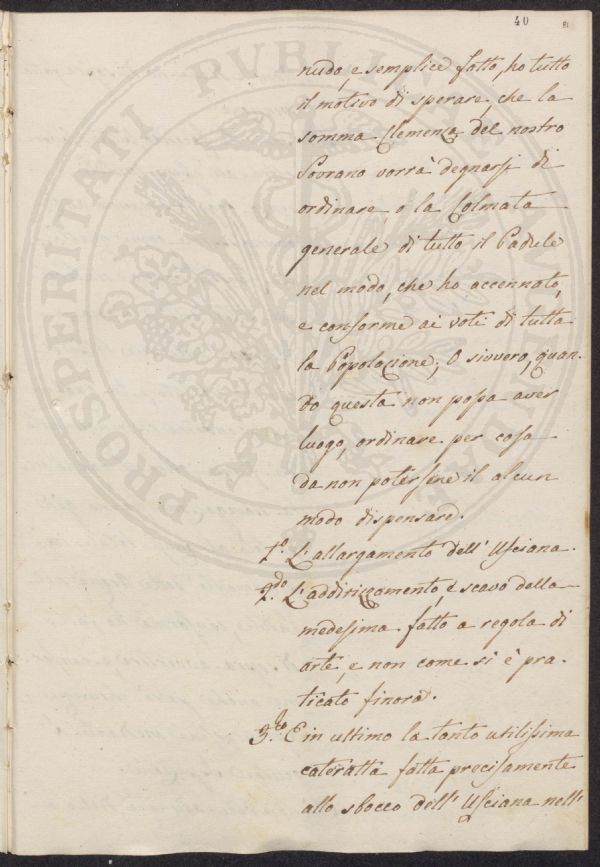 40
81
nudo, e semplice fatto, ho tutto
il motivo di sperare, che la
somma Clemenza del nostro
Sovrano vorrà degnarsi di
ordinare, o la Colmata
generale di tutto il Padule
nel modo, che ho accennato,
e conforme ai voti di tutta
la Popolazione; O sivvero, quan-
do questa non possa aver
luogo, ordinare per cosa
da non potersene il alcun
modo dispensare.
1.º L'allargamento dell'Usciana.
2.do L'addirizzamento, e scavo della
medesima fatto a regola di
arte, e non come si è pra-
ticato finora.
3.to E in ultimo la tanto utilissima
cateratta fatta precisamente
allo sbocco dell'Usciana nell'
PROSPERITATI PVBLICAE AVGENDAE